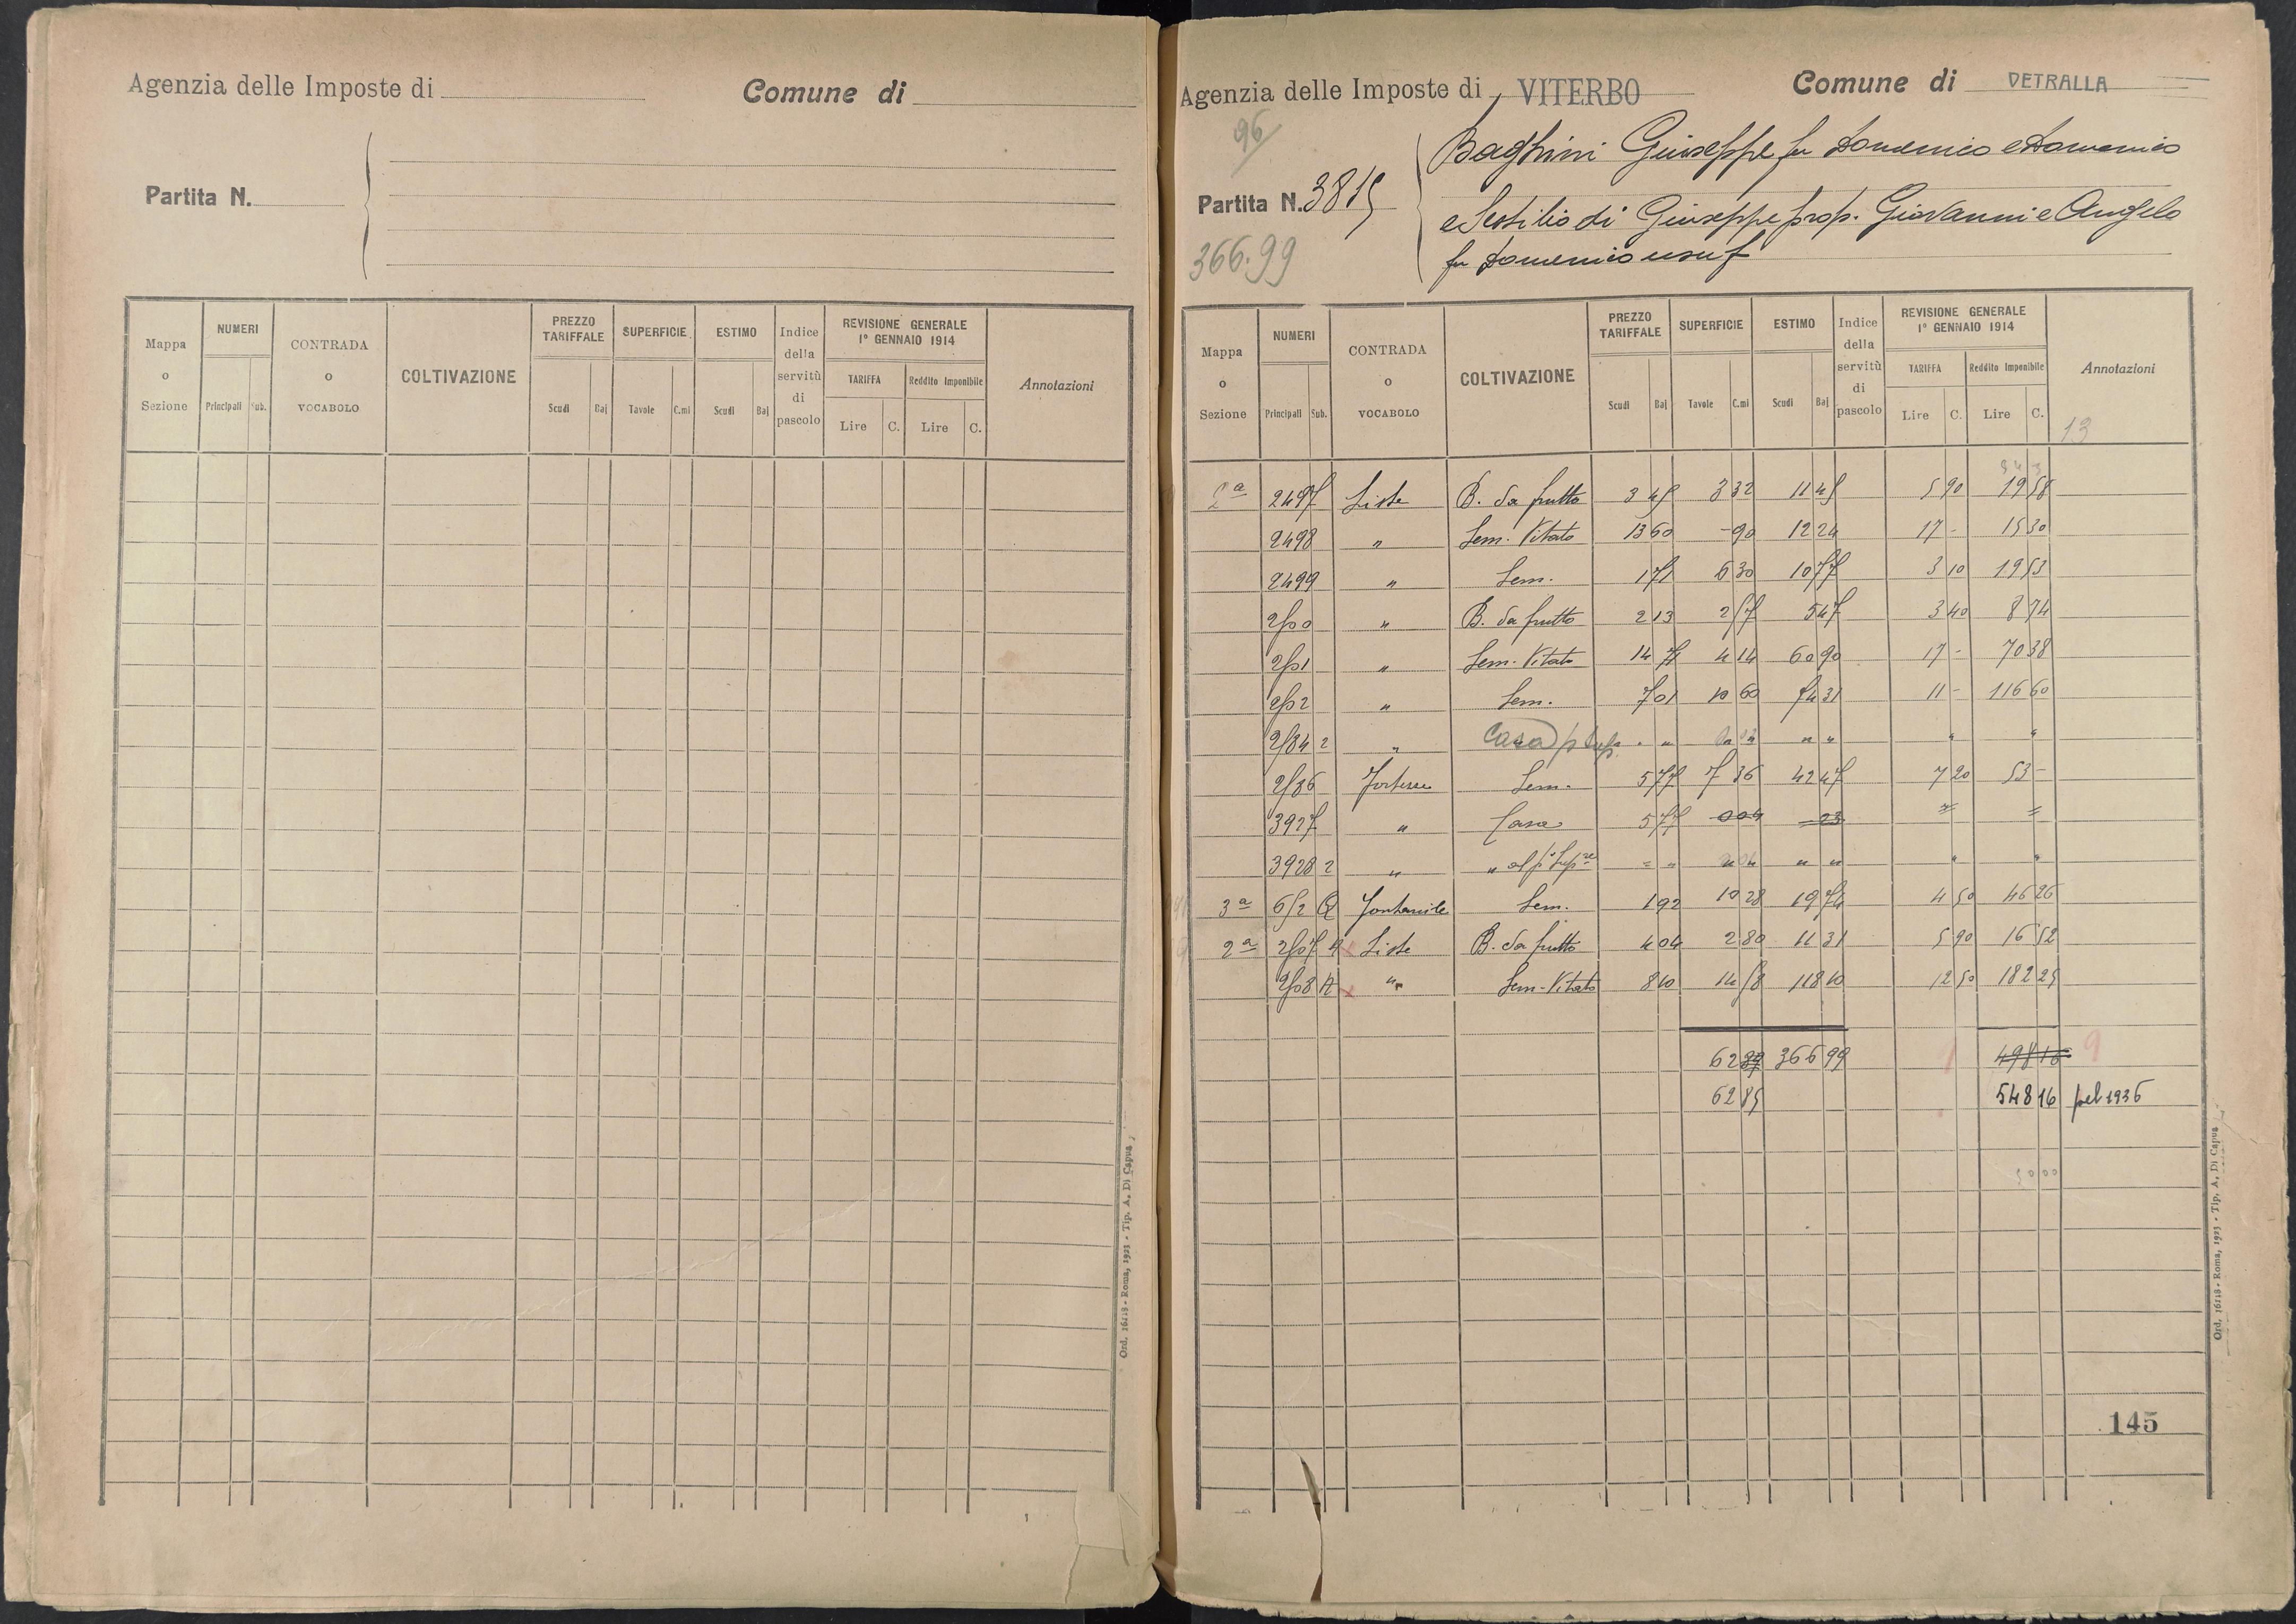 Agenzia delle Imposte di
Comune di
Partita N.
Mappa o Sezione
NUMERI
Principali Sub.
CONTRADA o VOCABOLO
COLTIVAZIONE
PREZZO TARIFFALE
Scudi Baj
SUPERFICIE
Tavole C.mi
ESTIMO
Scudi Baj
Indice della servitù di pascolo
REVISIONE GENERALE
1° GENNAIO 1914
TARIFFA
Lire C.
Reddito Imponibile
Lire C.
Annotazioni
Ord. 16118 - Roma, 1923 - Tip. A. Di Capua
Agenzia delle Imposte di VITERBO
Comune di VETRALLA
96
Partita N. 3815
366.99
Baghini Giuseppe fu Domenico e Domenico
e Sestilio di Giuseppe prop. Giovanni e Angelo
fu Domenico usuf
Mappa o Sezione
NUMERI
Principali Sub.
CONTRADA o VOCABOLO
COLTIVAZIONE
PREZZO TARIFFALE
Scudi Baj
SUPERFICIE
Tavole C.mi
ESTIMO
Scudi Baj
Indice della servitù di pascolo
REVISIONE GENERALE
1° GENNAIO 1914
TARIFFA
Lire C.
Reddito Imponibile
Lire C.
Annotazioni
13
2a 2497 Liste B. da frutto 3 45 3 32 11 45 5 90 19 58
2498 " Sem. Vitato 13 60 - 90 12 24 17 - 15 30
2499 " Sem. 1 71 6 30 10 77 3 10 19 53
2500 " B. da frutto 2 13 2 57 5 47 3 40 8 74
2501 " Sem. Vitato 14 71 4 14 60 90 17 - 70 38
2502 " Sem. 7 01 10 60 74 31 11 - 116 60
2534 2 " Casa p Sup. " " " " " "
2536 Sem. 5 77 7 36 42 47 7 20 53 -
3927 " Casa 5 77 0 04 - 23 = =
3928 2 " " al p° Supre = " " " " "
3a 652 Fontanile Sem. 1 92 10 28 19 74 4 50 46 26
2a 2507 Liste B. da frutto 4 04 2 80 11 31 5 90 16 52
2508 A " Sem. Vitato 8 10 14 58 118 10 12 50 182 25
62 89 366 99 498 16 9
62 85 548 16 pel 1936
50 00
145
Ord. 16118 - Roma, 1923 - Tip. A. Di Capua